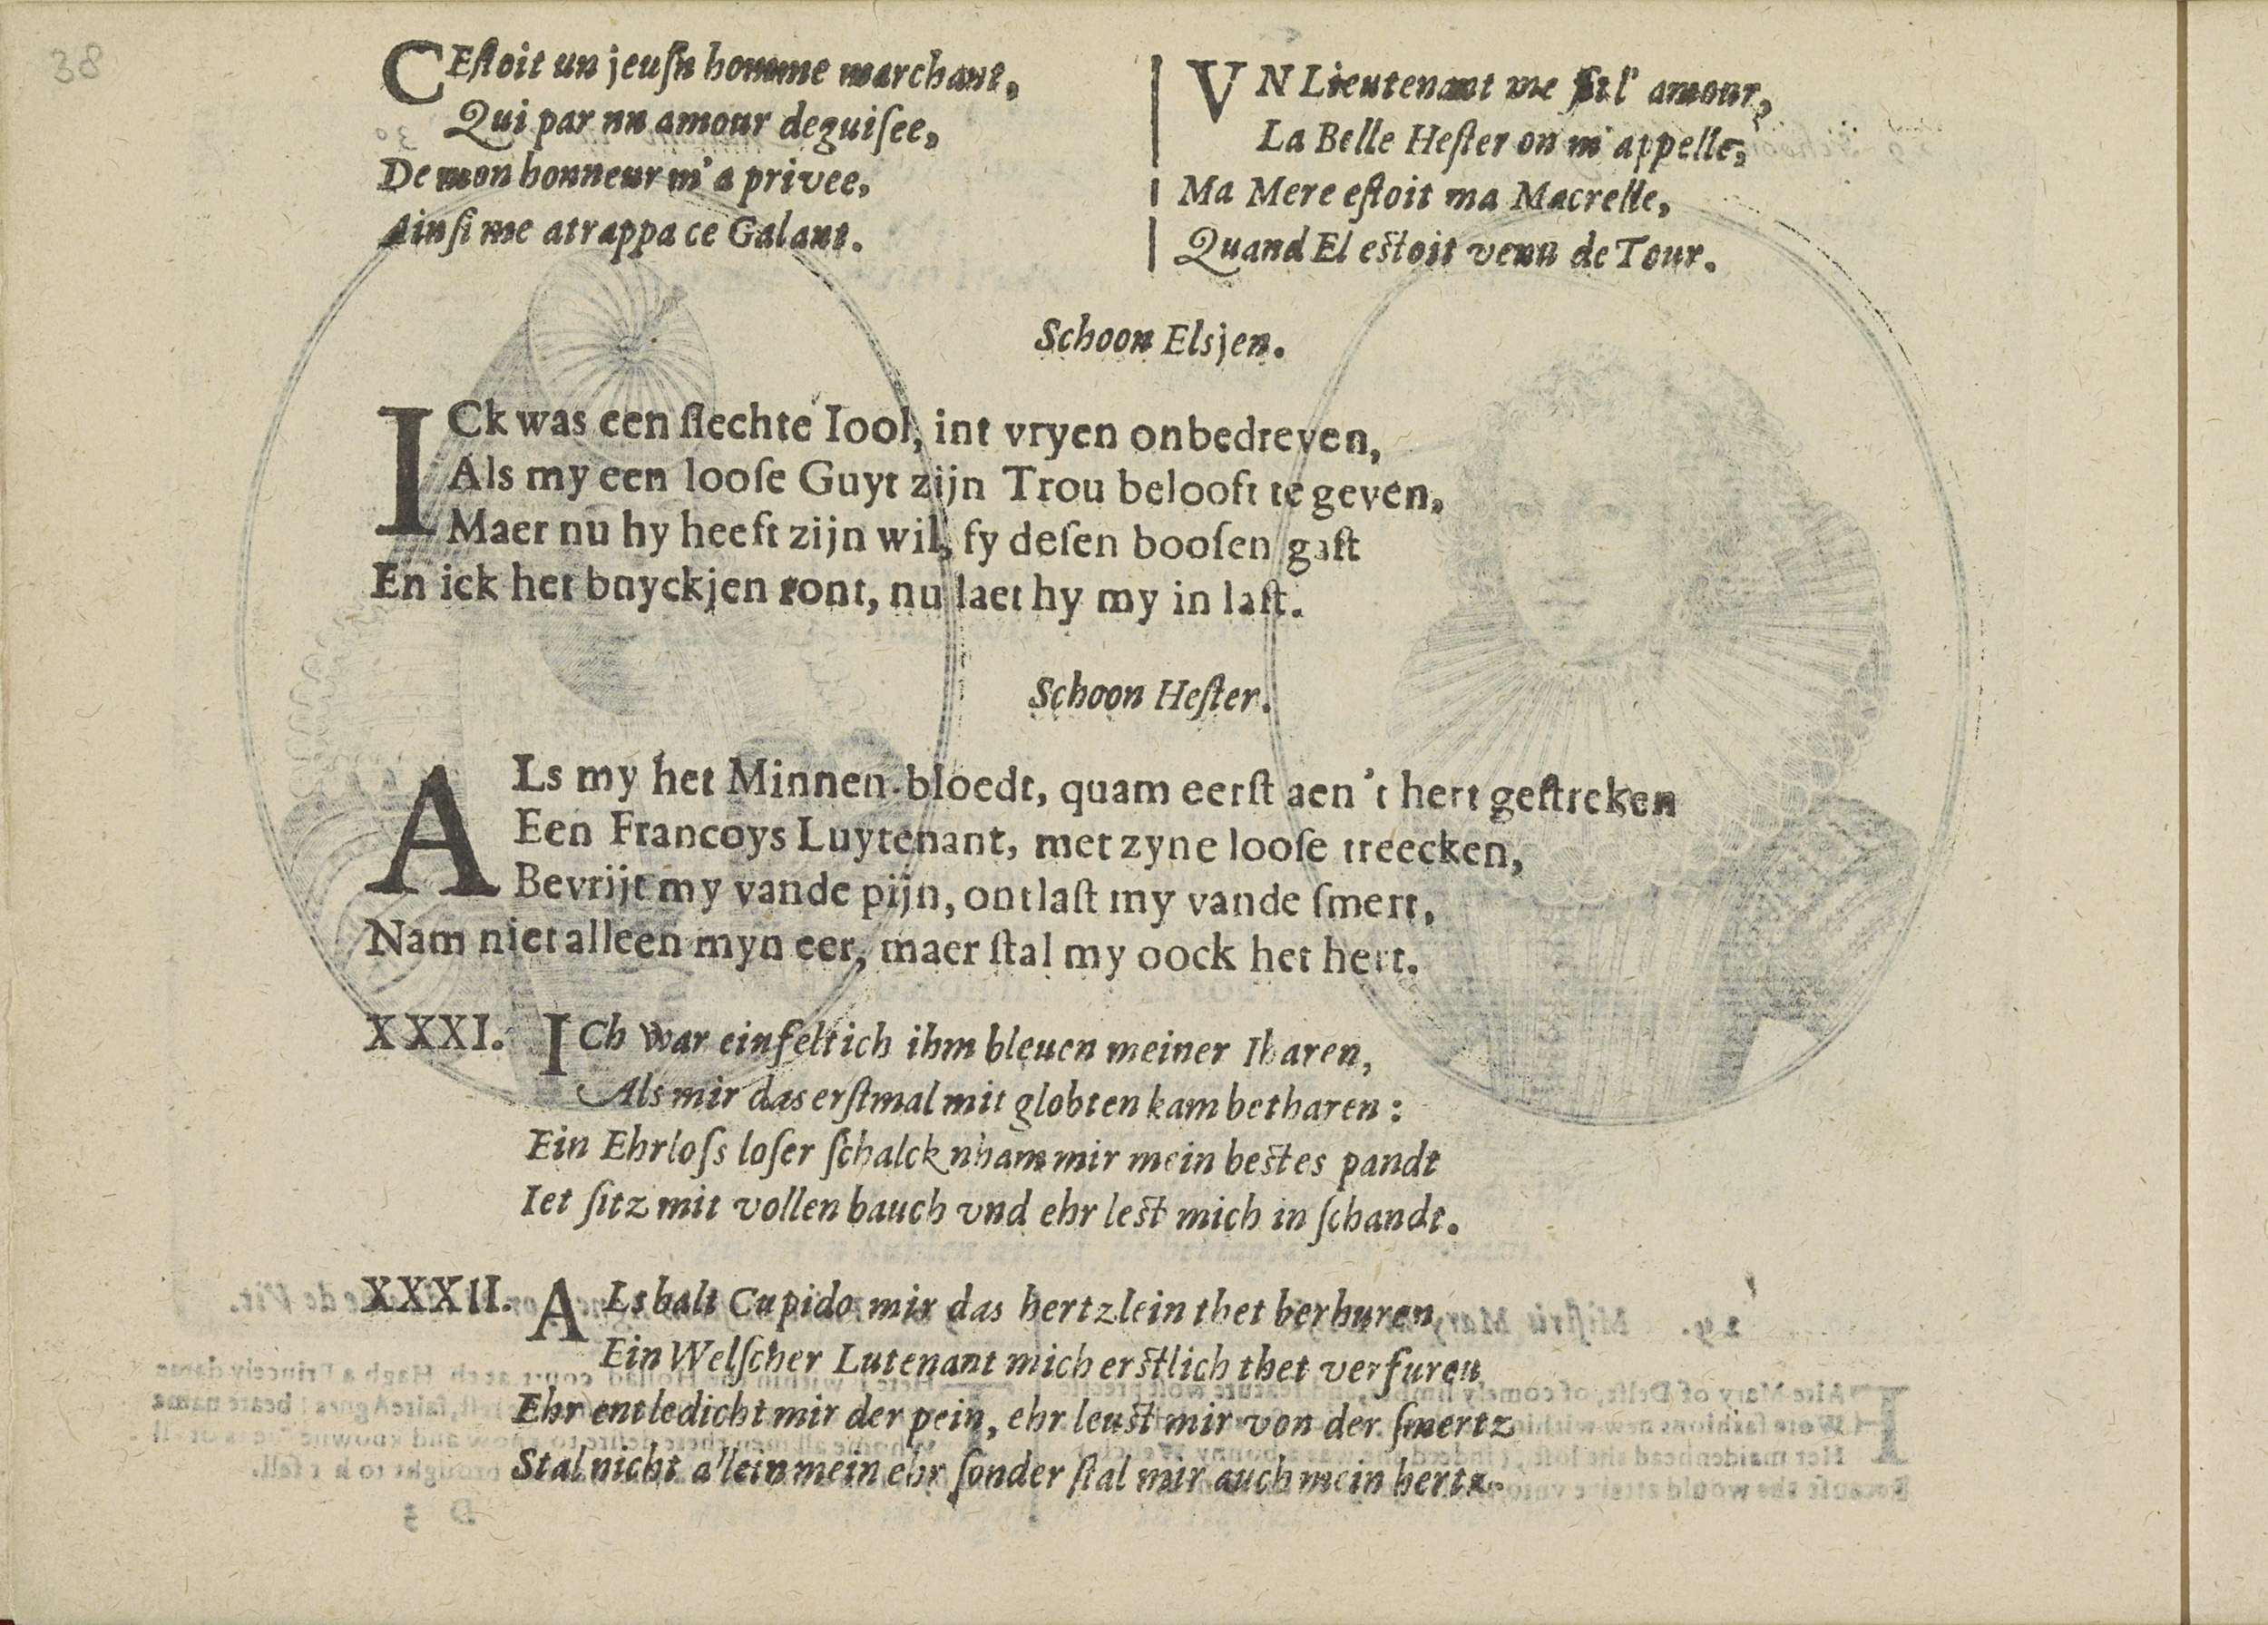 38
CEſtoit un jeuſn homme marchant,
Qui par nn amour deguiſee,
De mon honneur m'a privee,
Ainſi me atrappa ce Galant.
VN Lieutenant me fit l' amour,
La Belle Heſter on m' appelle,
Ma Mere eſtoit ma Macrelle,
Quand El eſtoit venu de Tour.
Schoon Elsjen.
ICk was een ſlechte Iool, int vryen onbedreven,
Als my een looſe Guyt zijn Trou belooft te geven,
Maer nu hy heeft zijn wil, fy deſen booſen gaſt
En ick het buyckjen ront, nu laet hy my in laſt.
Schoon Heſter.
ALs my het Minnen-bloedt, quam eerſt aen 't hert geſtreken
Een Francoys Luytenant, met zyne looſe treecken,
Bevrijt my vande pijn, ontlaſt my vande ſmert,
Nam niet alleen myn eer, maer ſtal my oock het hert.
XXXI. ICh war einfeltich ihm bleuen meiner Iharen,
Als mir das erſtmal mit globten kam betharen:
Ein Ehrloſs loſer ſchalck nham mir mein beſtes pandt
Iet ſitz mit vollen bauch vnd ehr leſt mich in ſchandt.
XXXII. ALs balt Cupido mir das hertzlein thet berhuren
Ein Welſcher Lutenant mich erſtlich thet verfuren
Ehr entledicht mir der pein, ehr leuſt mir von der ſmertz
Stal nicht allein mein ehr ſonder ſtal mir auch mein hertz.